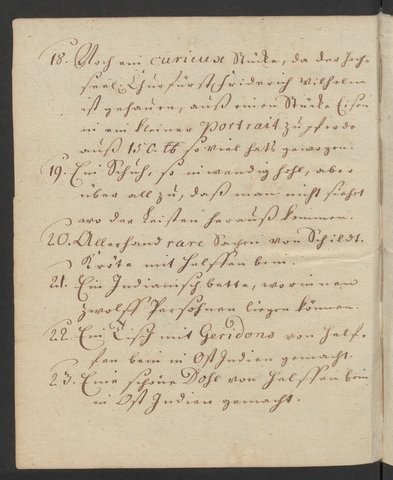 18. Noch ein curieux Stücke, da der hoch-
seel. Churfürst Friderich Wilhelm
ist gehauen, auß einen Stücke Eisen
in ein kleiner Portrait zu pferde
auß 150. ℔ so viel hats gewogen.
19. Ein Schuh, so inwendig hohl, aber
über all zu, daß man nicht siehet
wo der Leisten herauß kommen.
20. Allerhand rare Sachen von Schildt.
Kröte mit Helffen bein.
21. Ein Indianisch bette, worinnen
zwölff Persohnen liegen können.
22. Ein Tisch mit Geridons von helf-
fen bein in Ost Indien gemacht.
23. Eine schöne Dose von Helffen bein
in Ost Indien gemacht.